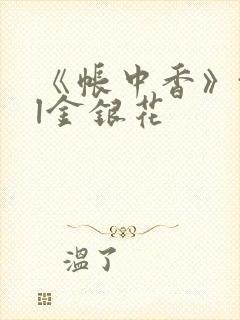 《帐中香》
|金银花
温了